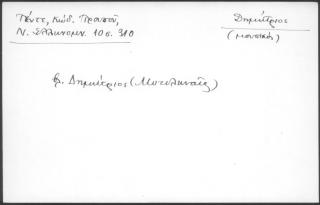 Πέντε, Κώδ. Πραποῦ,
Ν. Ἑλληνομν. 10 σ. 310
Δημήτριος
(μουσικός)
Δημήτριος (Μυτιληναῖος)